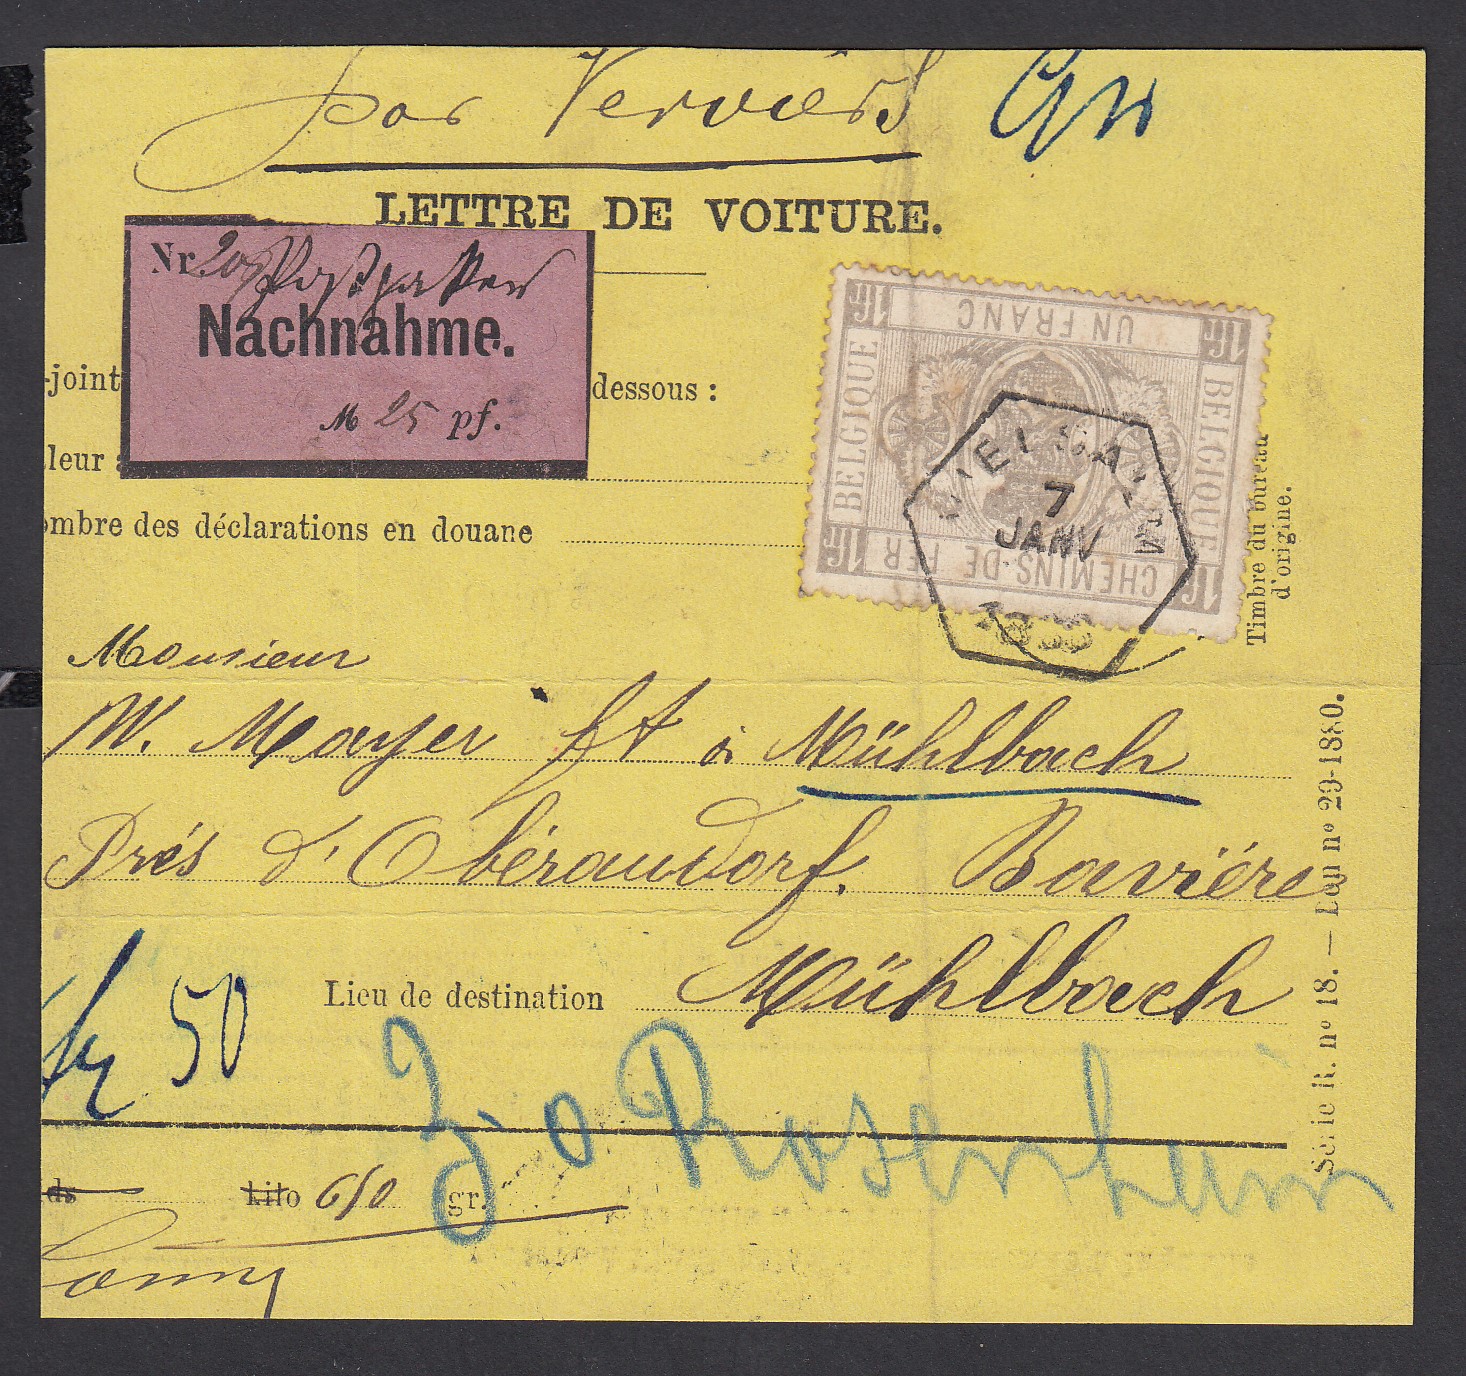 par Verviers
LETTRE DE VOITURE.
Nr 209 Postpaket
Nachnahme.
M 25 pf.
-joint
dessous :
leur
ombre des déclarations en douane
1Fr UN FRANC 1Fr
BELGIQUE
BELGIQUE
1Fr CHEMINS-DE-FER 1Fr
VIELSALM
7
JANV
Timbre du bureau
d'origine.
Monsieur
W. Mayer ft à Mühlbach
Prés d'Obéraudorf. Baviére
50 Lieu de destination Mühlbach
Rosenheim
ds kilo 650 gr.
Série R. nº 18. — Len nº 29-1880.